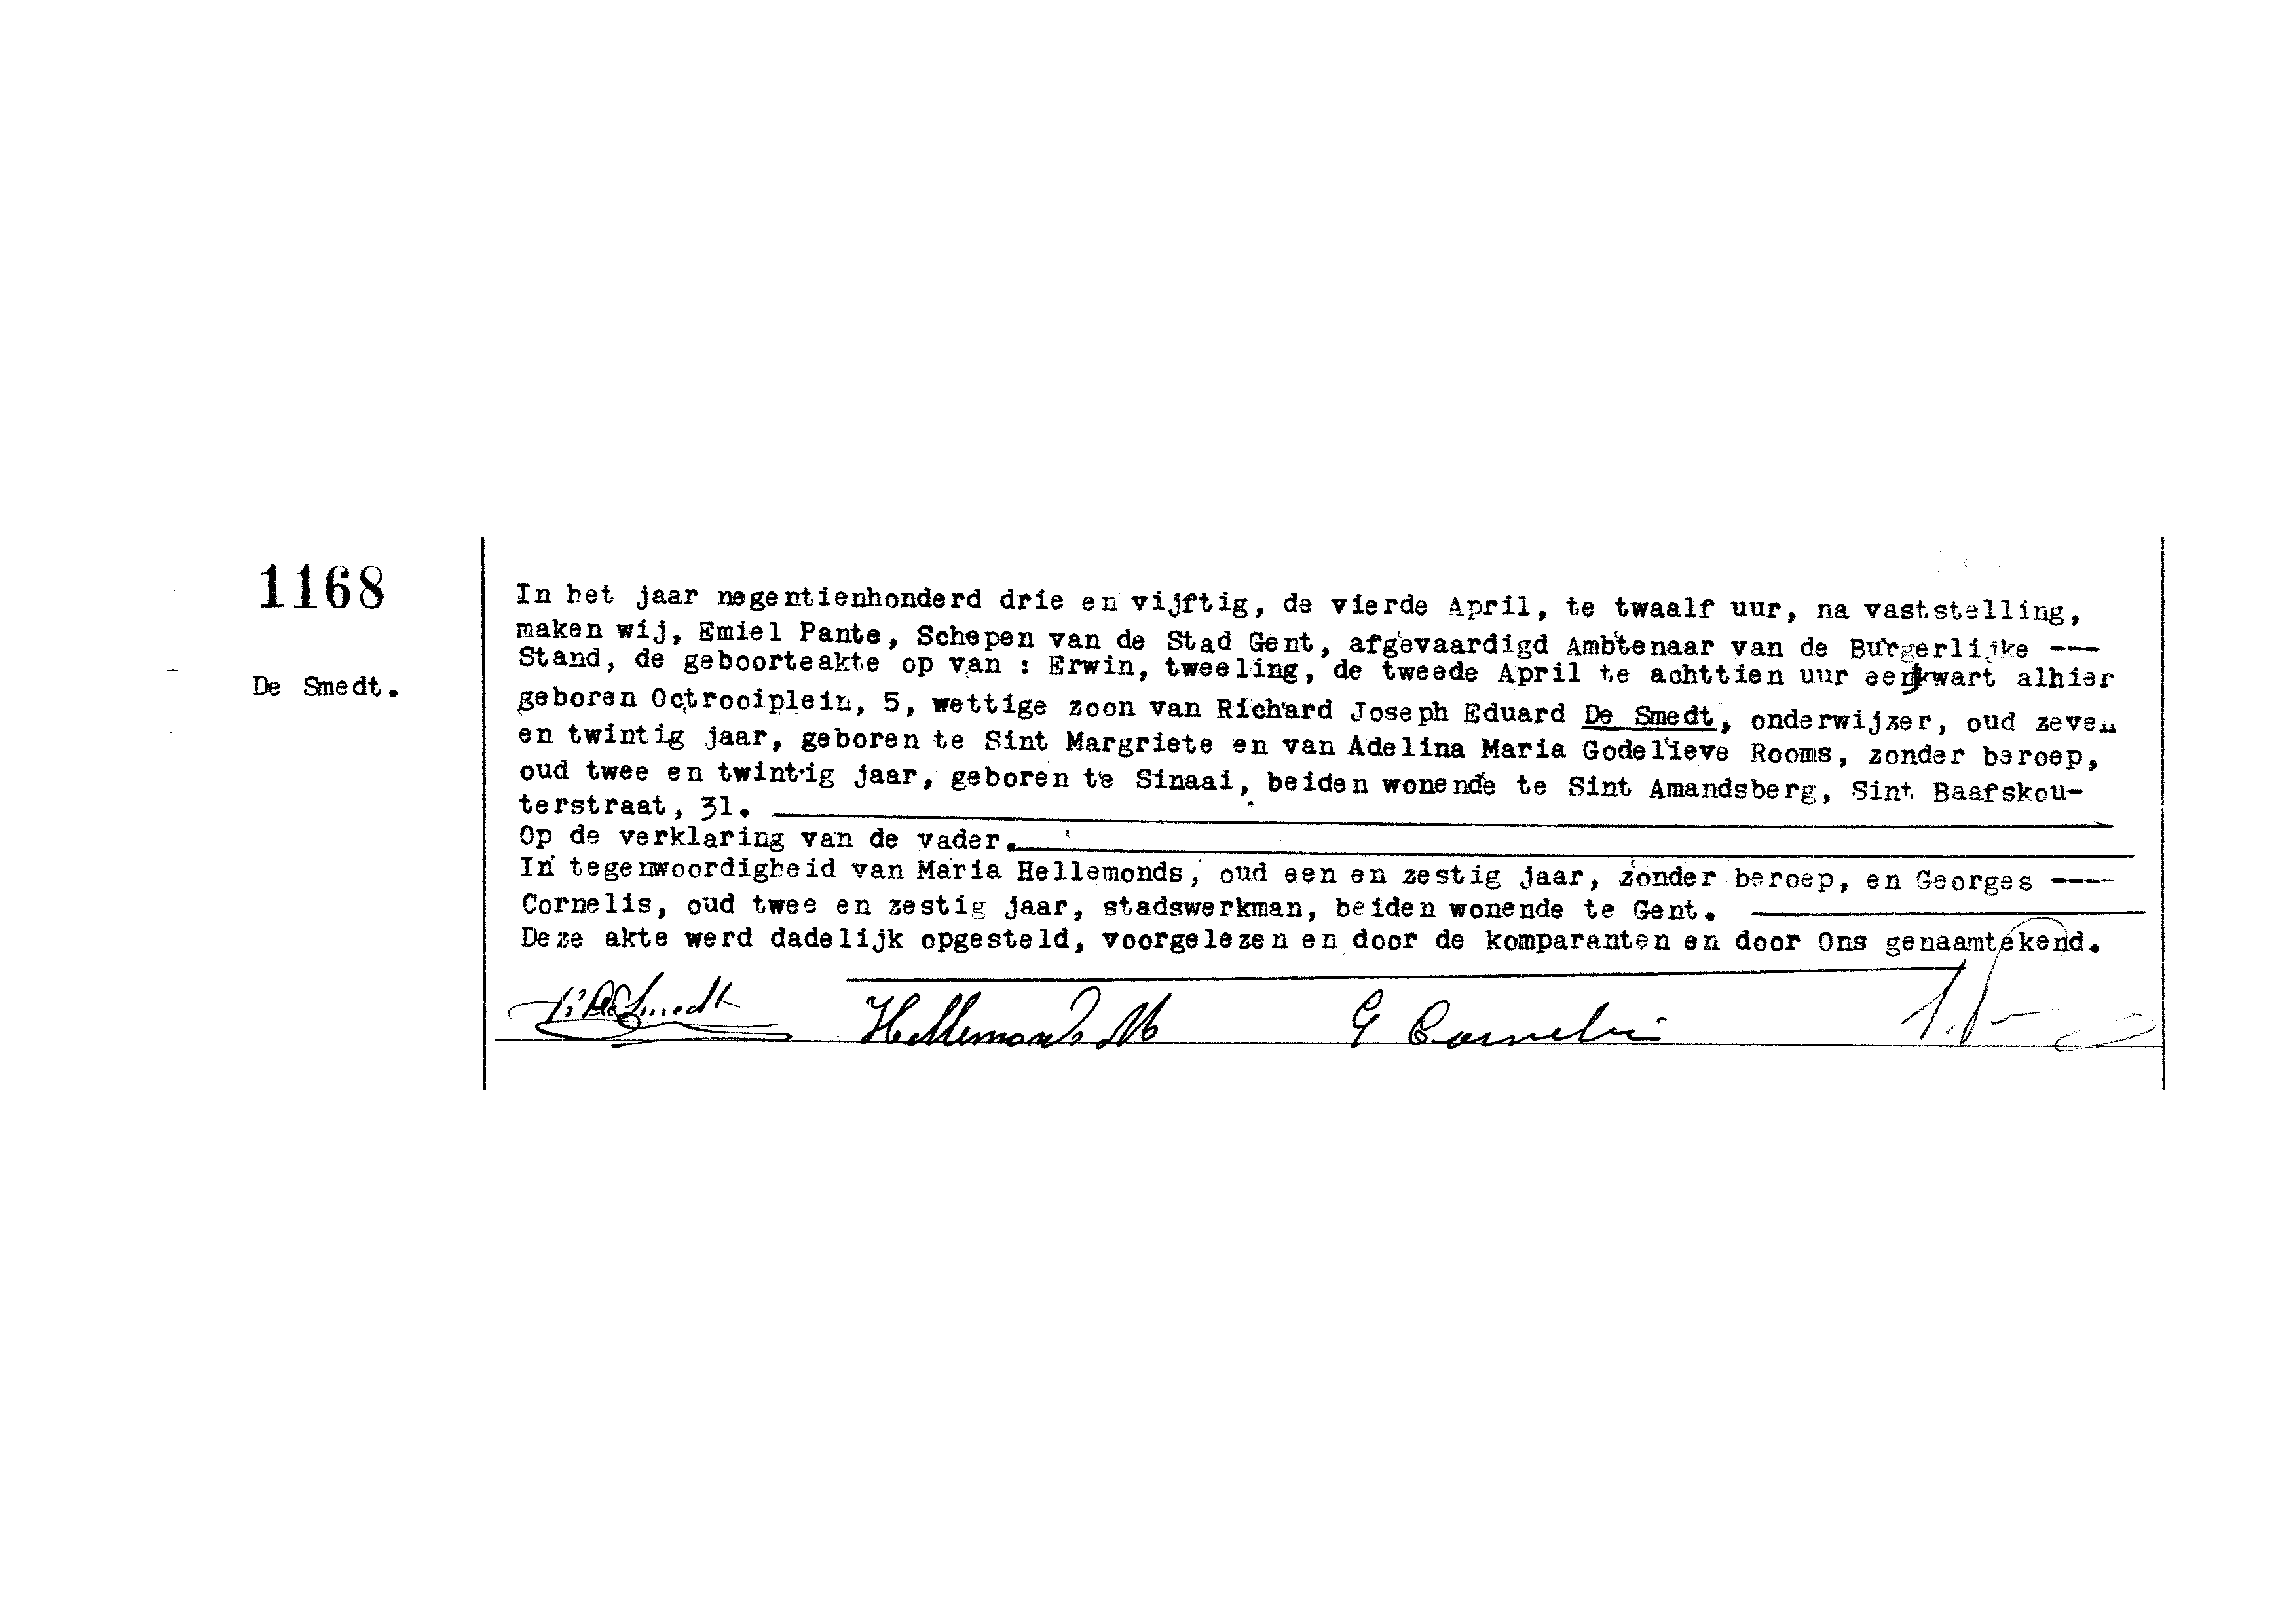 1168
De Smedt.
In het jaar negentienhonderd drie en vijftig, de vierde April, te twaalf uur, na vaststelling,
maken wij, Emiel Pante, Schepen van de Stad Gent, afgevaardigd Ambtenaar van de Burgerlijke ---
Stand, de geboorteakte op van : Erwin, tweeling, de tweede April te achttien uur een kwart alhier
geboren Octrooiplein, 5, wettige zoon van Richard Joseph Eduard De Smedt, onderwijzer, oud zeven
en twintig jaar, geboren te Sint Margriete en van Adelina Maria Godelieve Rooms, zonder beroep,
oud twee en twintig jaar, geboren te Sinaai, beiden wonende te Sint Amandsberg, Sint Baafskou-
terstraat, 31.
Op de verklaring van de vader.
In tegenwoordigheid van Maria Hellemonds, oud een en zestig jaar, zonder beroep, en Georges ----
Cornelis, oud twee en zestig jaar, stadswerkman, beiden wonende te Gent.
Deze akte werd dadelijk opgesteld, voorgelezen en door de komparanten en door Ons genaamtekend.
DeSmedt Hellemonds M G Cornelis